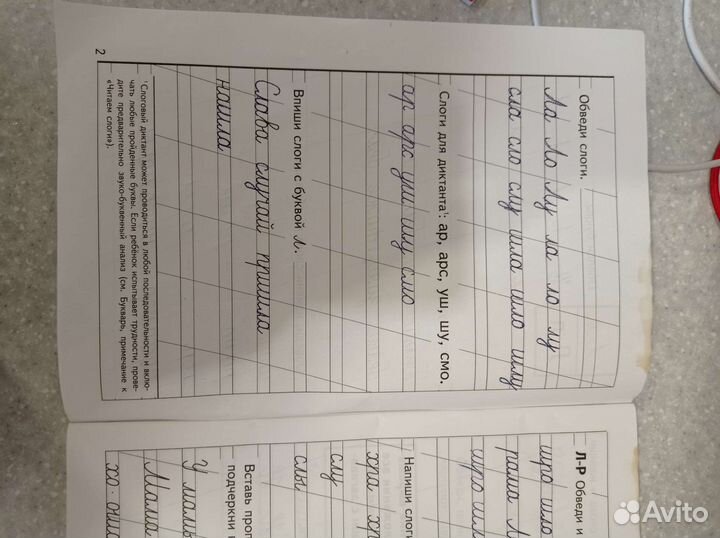 Обведи слоги.
Ла Ло Лу ла ло лу
сла сло слу шла шло шлу
Слоги для диктанта¹: ар, арс, уш, шу, смо.
ар арс уш шу смо
Впиши слоги с буквой л.
Слава случай пришла
нашла
¹Слоговый диктант может проводиться в любой последовательности и вклю-
чать любые пройденные буквы. Если ребёнок испытывает трудности, прове-
дите предварительно звуко-буквенный анализ (см. Букварь, примечание к
«Читаем слоги»).
2
Л-Р Обведи и
шро шло
рама
шро
Напиши слоги
хра
слу
слы
Встав
подчеркни
У мамы
Мама
Avito